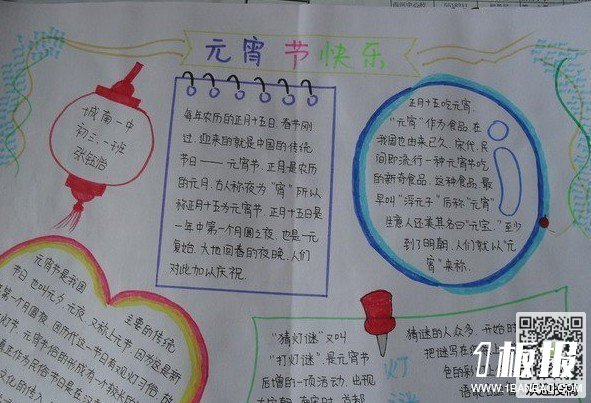 元宵节快乐
城南一中
初三.一班
张钰怡
每年农历的正月十五日.春节刚
过,迎来的就是中国的传统
节日——元宵节.正月是农历
的元月,古人称夜为"宵"所以
称正月十五为元宵节.正月十五日是
一年中第一个月圆之夜,也是一元
复始.大地回春的夜晚.人们
对此加以庆祝.
正月十五吃元宵.
"元宵"作为食品.在
我国也由来已久.宋代.民
间即流行一种元宵节吃
的新奇食品.这种食品.最
早叫"浮元子"后称"元宵"
生意人还美其名曰"元宝"至少
到了明朝.人们就以"元
宵"来称.
元宵节是我国
主要的传统
节日.也叫元夕.元夜.又称上元节.因为这是新
第一个月圆夜.因历代这一节日有观灯习俗.故
灯节.元宵节俗的形成有一个较长的
作为民俗节日是在汉
文化的传入
"猜灯谜"又叫
"打灯谜".是元宵节
后增的一项活动.出现
猜谜的人众多.开始时
把谜写在
色的
1板报
WWW.1BANBAO.COM
欢迎投稿